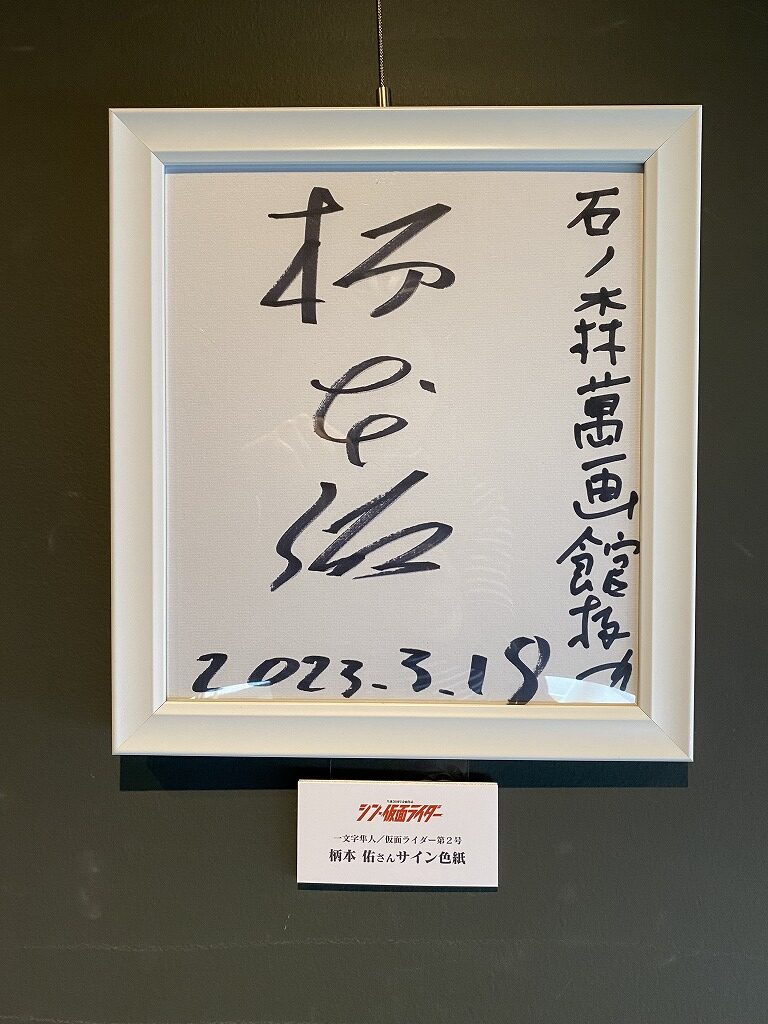 石ノ森萬画館
柄本佑
2023.3.18
シン・仮面ライダー
一文字隼人/仮面ライダー第2号
柄本 佑さんサイン色紙